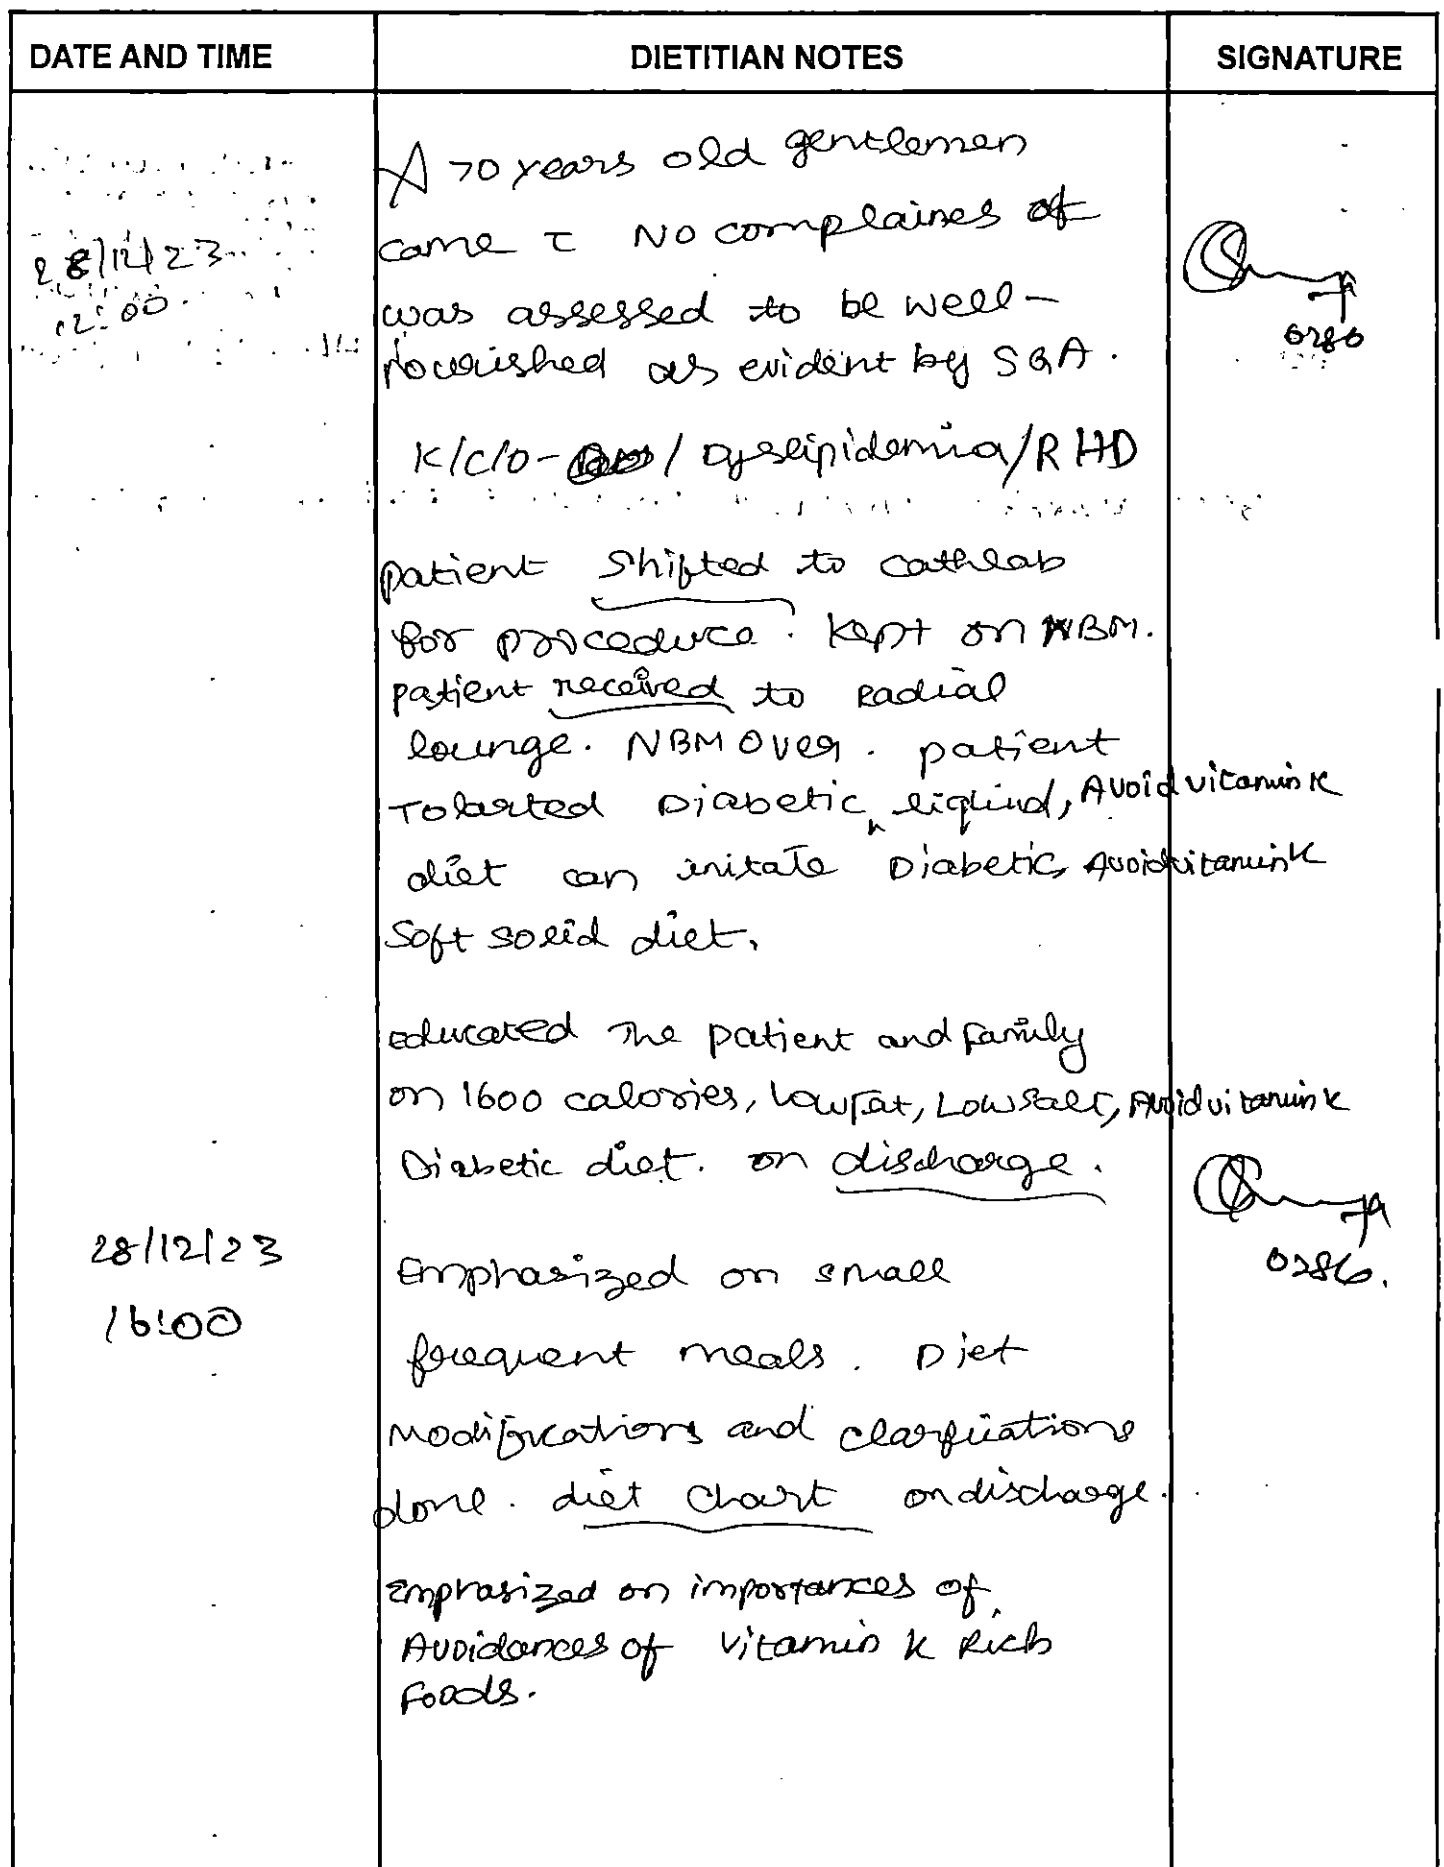 DATE AND TIME DIETITIAN NOTES SIGNATURE
A 70 years old gentlemen
came c̄ NO complaines of
28/12/23
12:00
was assessed to be well-
nourished as evident by SGA.
0286
K/C/O- / Dyslipidemia/RHD
patient Shifted to cathlab
for procedure. Kept on NBM.
patient received to Radial
lounge. NBM Over. patient
Tolarted Diabetic, liqiud, Avoid vitamin K
diet can initate Diabetic, Avoid vitamin K
Soft solid diet.
educated The patient and family
on 1600 calories, Low fat, Low salt, Avoid vitamin K
Diabetic diet. on discharge.
28/12/23
16:00
0286.
Emphasized on small
frequent meals. Diet
Modifications and clarfiations
done. diet chart on discharge.
Emphasized on importances of
Avoidances of vitamin K Rich
Foods.